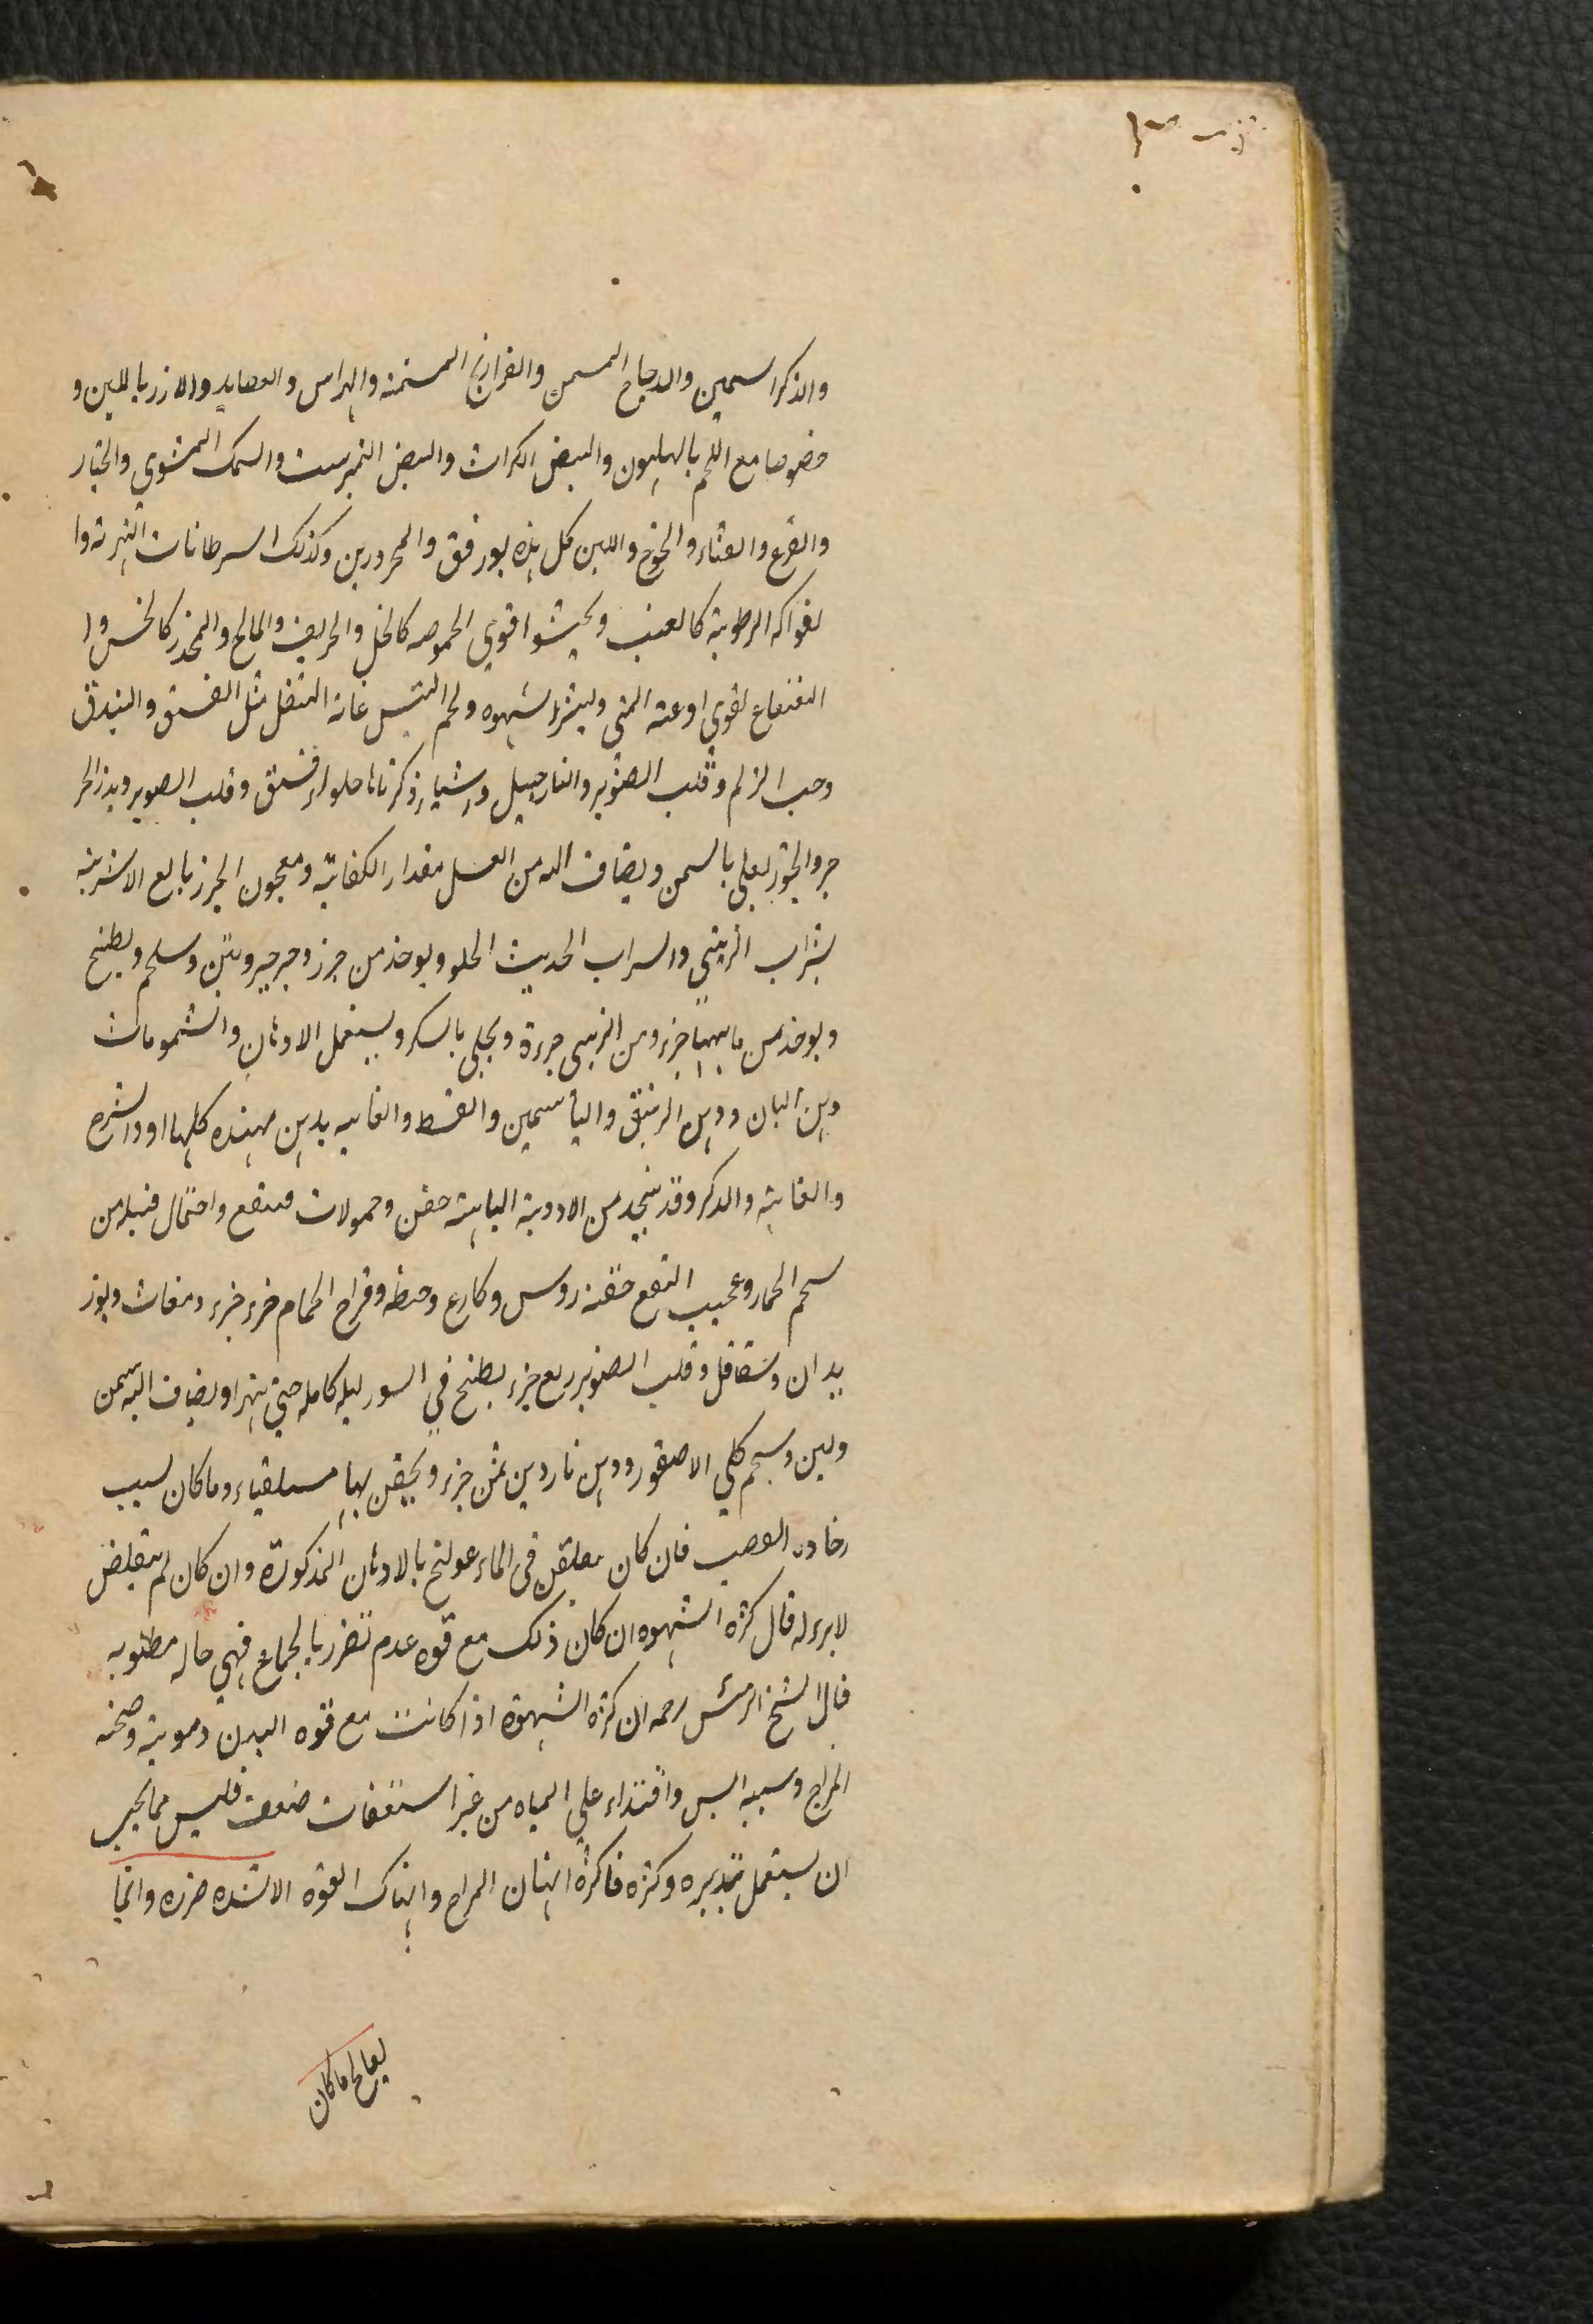 والذكر السمين والدجاج المسمن والفراريج المسمنه والهراس والعصايد والارز باللبن و
خصوصا مع اللحم بالهليون والبيض الكراث والبيض النمبرست والسمك المشوي والخيار
والقرع والقثاء والخوخ واللبن كل هذه يورفق والمحرورين وكذلك السرطانات النهرية وا
لفواكه الرطوبة كالعنب و اقوي الحموصه كالخل والحريف والمالح والمخدر كالخس وا
النعناع لقوي اوعته المني وليشر الشهوه ولحم التيس غانه التنقل مثل الفستق والبندق
وحب الزلم وقلب الصنوبر والنارجيل واشياء ذكرناها حلواء فستق وقلب الصوبر وبذر الجر
جر والجوز يغلي بالسمن ويضاف اليه من العسل مقدار الكفاية ومعجون الجزر بالع الاشربة
بشراب الزبيبي والسراب الحديث الحلو ويوخذ من جزر وجرجير وتين وسلجم ويطبخ
ويوخذ من مايهما جزء ومن الزبيبي جزءة ويحلي بالسكر ويستعمل الادهان والشمومات
دهن البان ودهن الزنبق والياسمين والقسط والغاليه يدهن بهذه كلها او
والعانة والذكر وقد يتخذ من الادوية الباهية حقن وحمولات فينفع واحتمال فتيله من
سحم الحمار وعجيب النفع حقنه روس وكارع وحنطه وفراخ الحمام جزء جزء ومغاث وبوز
يدان وشقاقل وقلب الصنوبر ربع جزء يطبخ في السور ليله كامله حتي يتهرا ويضاف اليه سمن
ولبن وسحم كلي الاصقور ودهن ناردين ثمن جزء ويحقن بها مسلقياء وما كان لسبب
رخاوه العصب فان كان يتقلص في الماء عولج بالادهان المذكورة وان كان لم يتقلص
لابرء له قال كثره الشهوه ان كان ذلك مع قوه عدم تضرر بالجماع فهي حاله مطلوبه
قال الشيخ الرئس رحمه ان كثره الشهوة اذا كانت مع قوه البدن دمويته وصحته
المزاج وسببه اليبس واقتذاء علي المياه من غير استعقاب ضعف فليس مما يجب
ان يستعمل بتدبيره وكثره فاكثره انهان المزاج وانهاك القوه الاشده ضرره وانما
يعالج ما كان